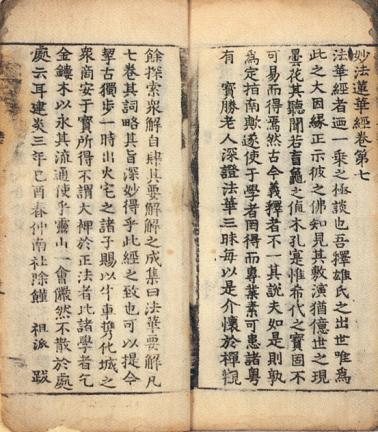 妙法蓮華經卷第七
法華經者迺一乘之極談也吾釋雄氏之出世唯為
此之大因緣正示彼之佛知見其敷演猶億世之現
曇花其聽聞若盲龜之值木孔寔惟希代之寶固不
可易而得焉然古今義釋者不一其說夫如是則孰
為定指南歟遂使于學者罔得而專業素可患諸粵
有 寶勝老人深證法華三昧每以是介懷於禪觀
餘探索眾解自肆其要解解之成集曰法華要解凡
七卷其詞略其旨深妙得乎此經之致也可以提今
挈古獨步一時出火宅之諸子賜以牛車誘化城之
眾商安于寶所得不謂大裨於正法者此諸學者乞
金鏤木以永其流通使乎靈山一會儼然不散於處
處云耳建炎三年己酉春仲南社除饉 祖派 跋